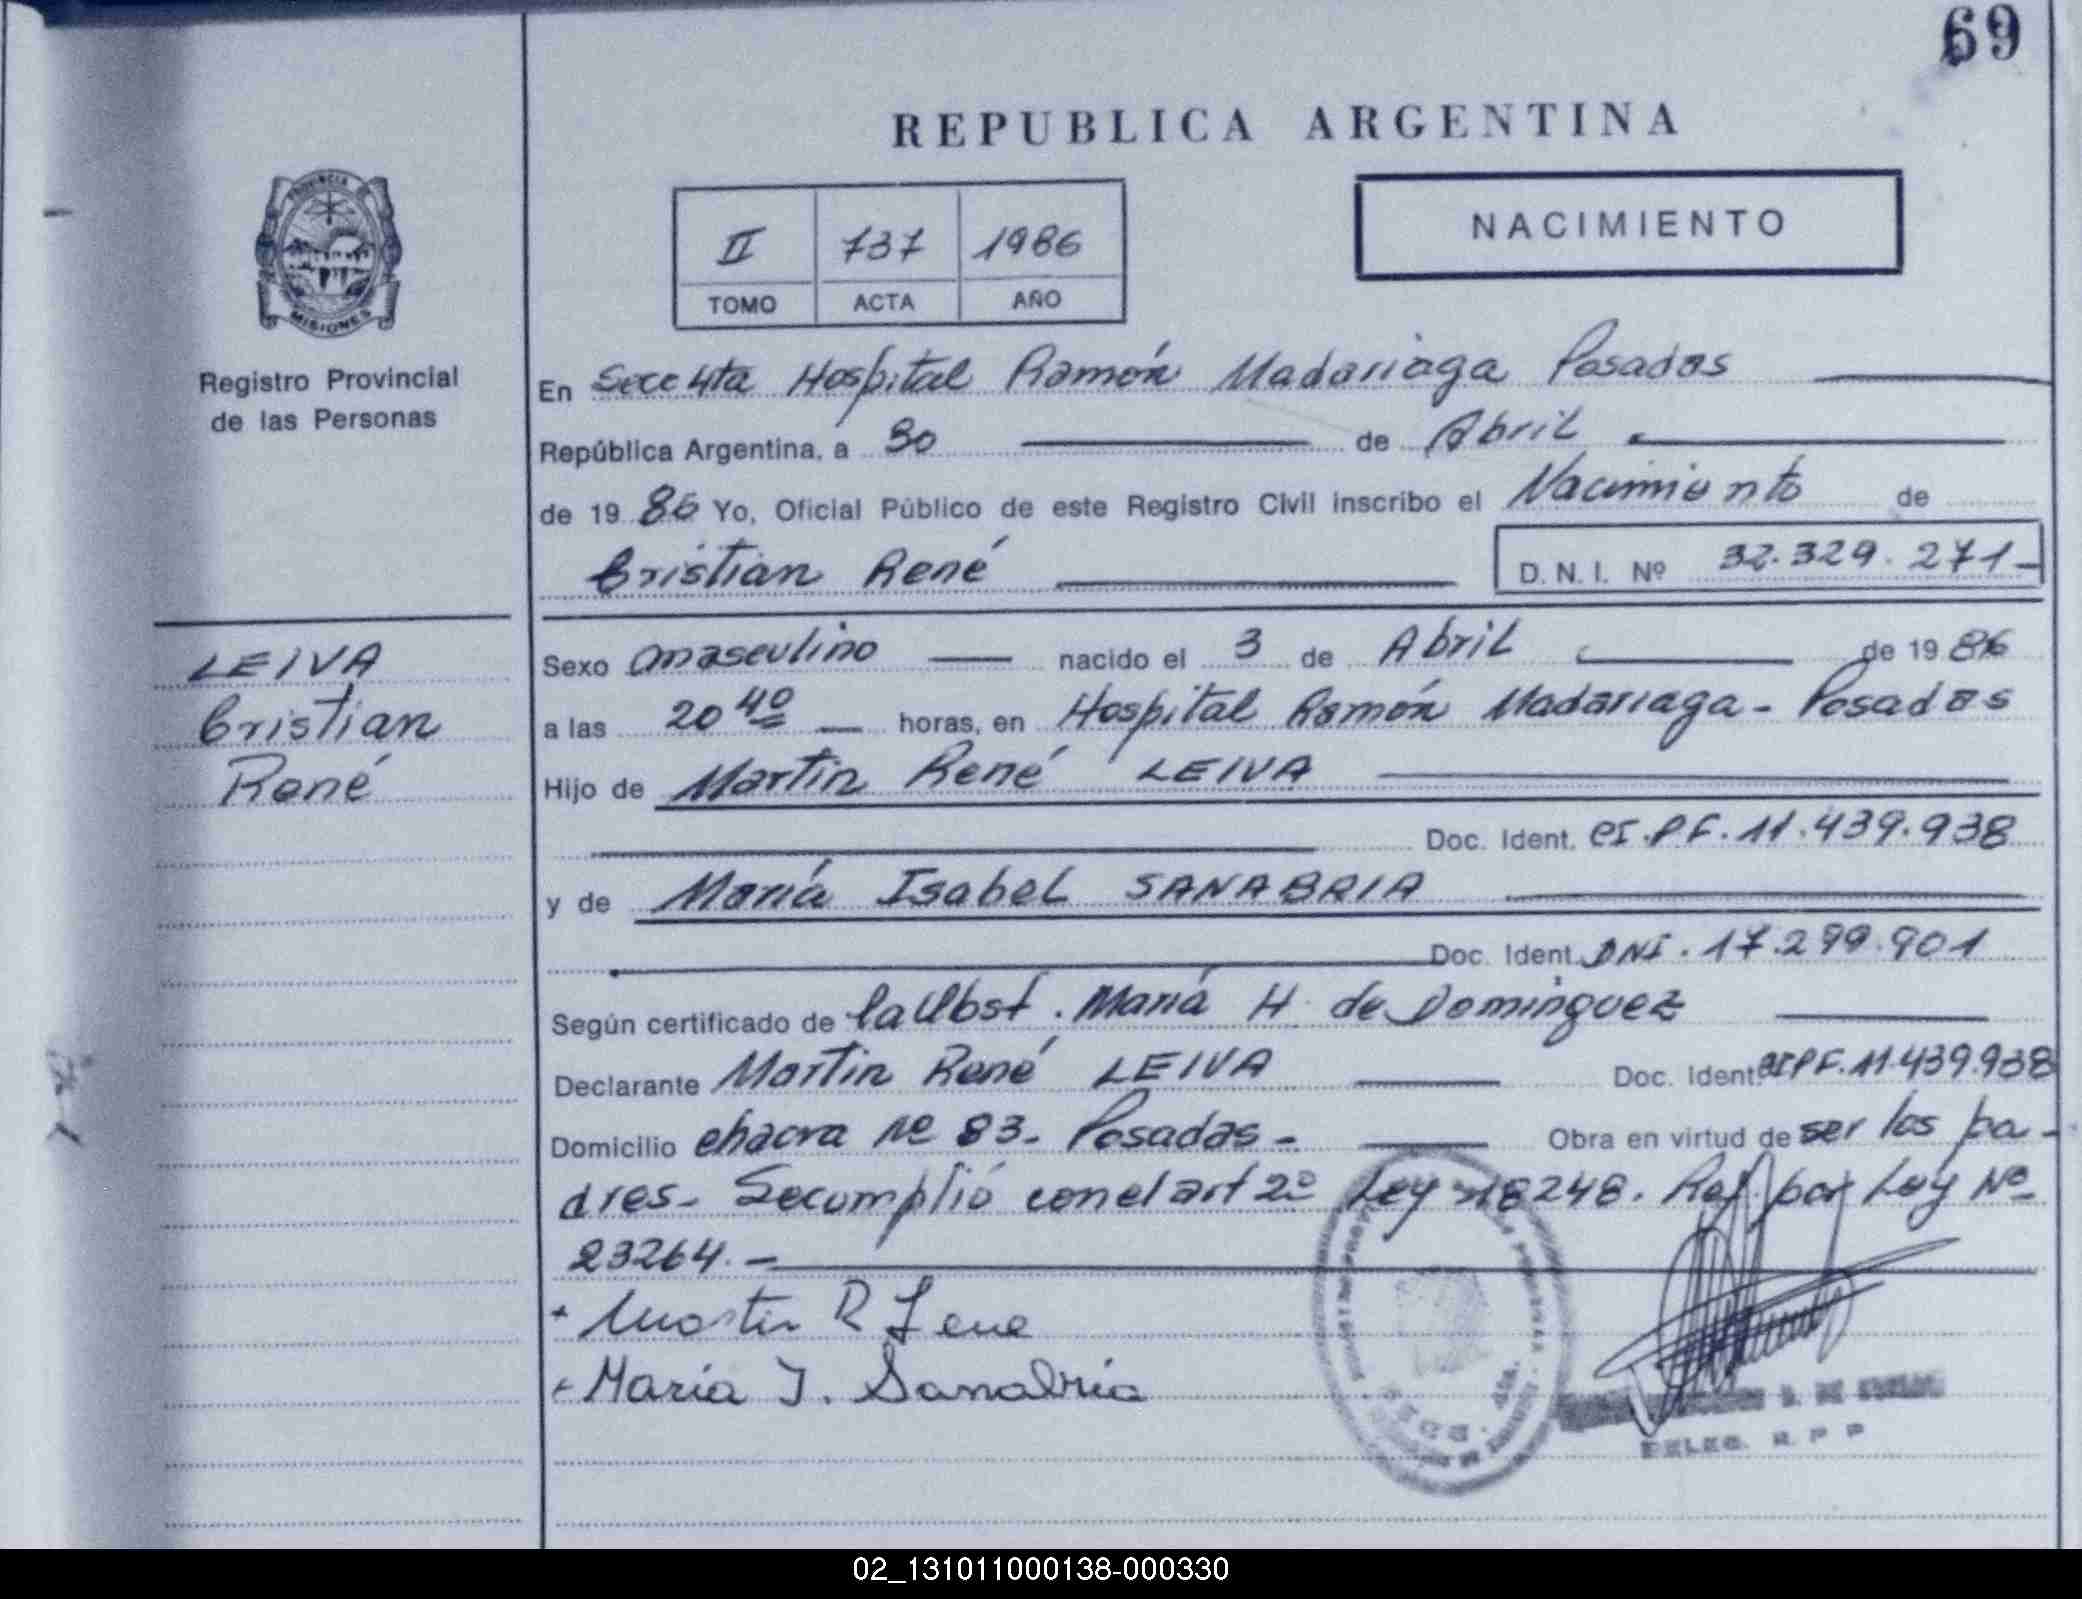 69
REPUBLICA ARGENTINA
PROVINCIA
MISIONES
Registro Provincial
de las Personas
NACIMIENTO
II 737 1986
TOMO ACTA AÑO
En Secc 4ta Hospital Ramón Madariaga Posadas
República Argentina, a 30 de Abril
de 1986 Yo, Oficial Público de este Registro Civil inscribo el Nacimiento de
Cristian René
D. N. I. Nº 32.329.271
LEIVA
Cristian
René
Sexo masculino nacido el 3 de Abril de 1986
a las 20 40 horas, en Hospital Ramón Madariaga - Posadas
Hijo de Martin René LEIVA
Doc. Ident. CI.PF. 11.439.938
y de María Isabel SANABRIA
Doc. Ident. DNI. 17.299.901
Según certificado de la Obst. María H de Dominguez
Declarante Martin René LEIVA Doc. Ident. CI PF. 11.439.938
Domicilio chacra Nº 83. Posadas - Obra en virtud de ser los pa-
dres. Se cumplió con el art 2º Ley 18248. Ref. por Ley Nº
23264.-
+ Martin R Leiva
+ Maria I. Sanabria
DELEG. R. P. P
02_131011000138-000330